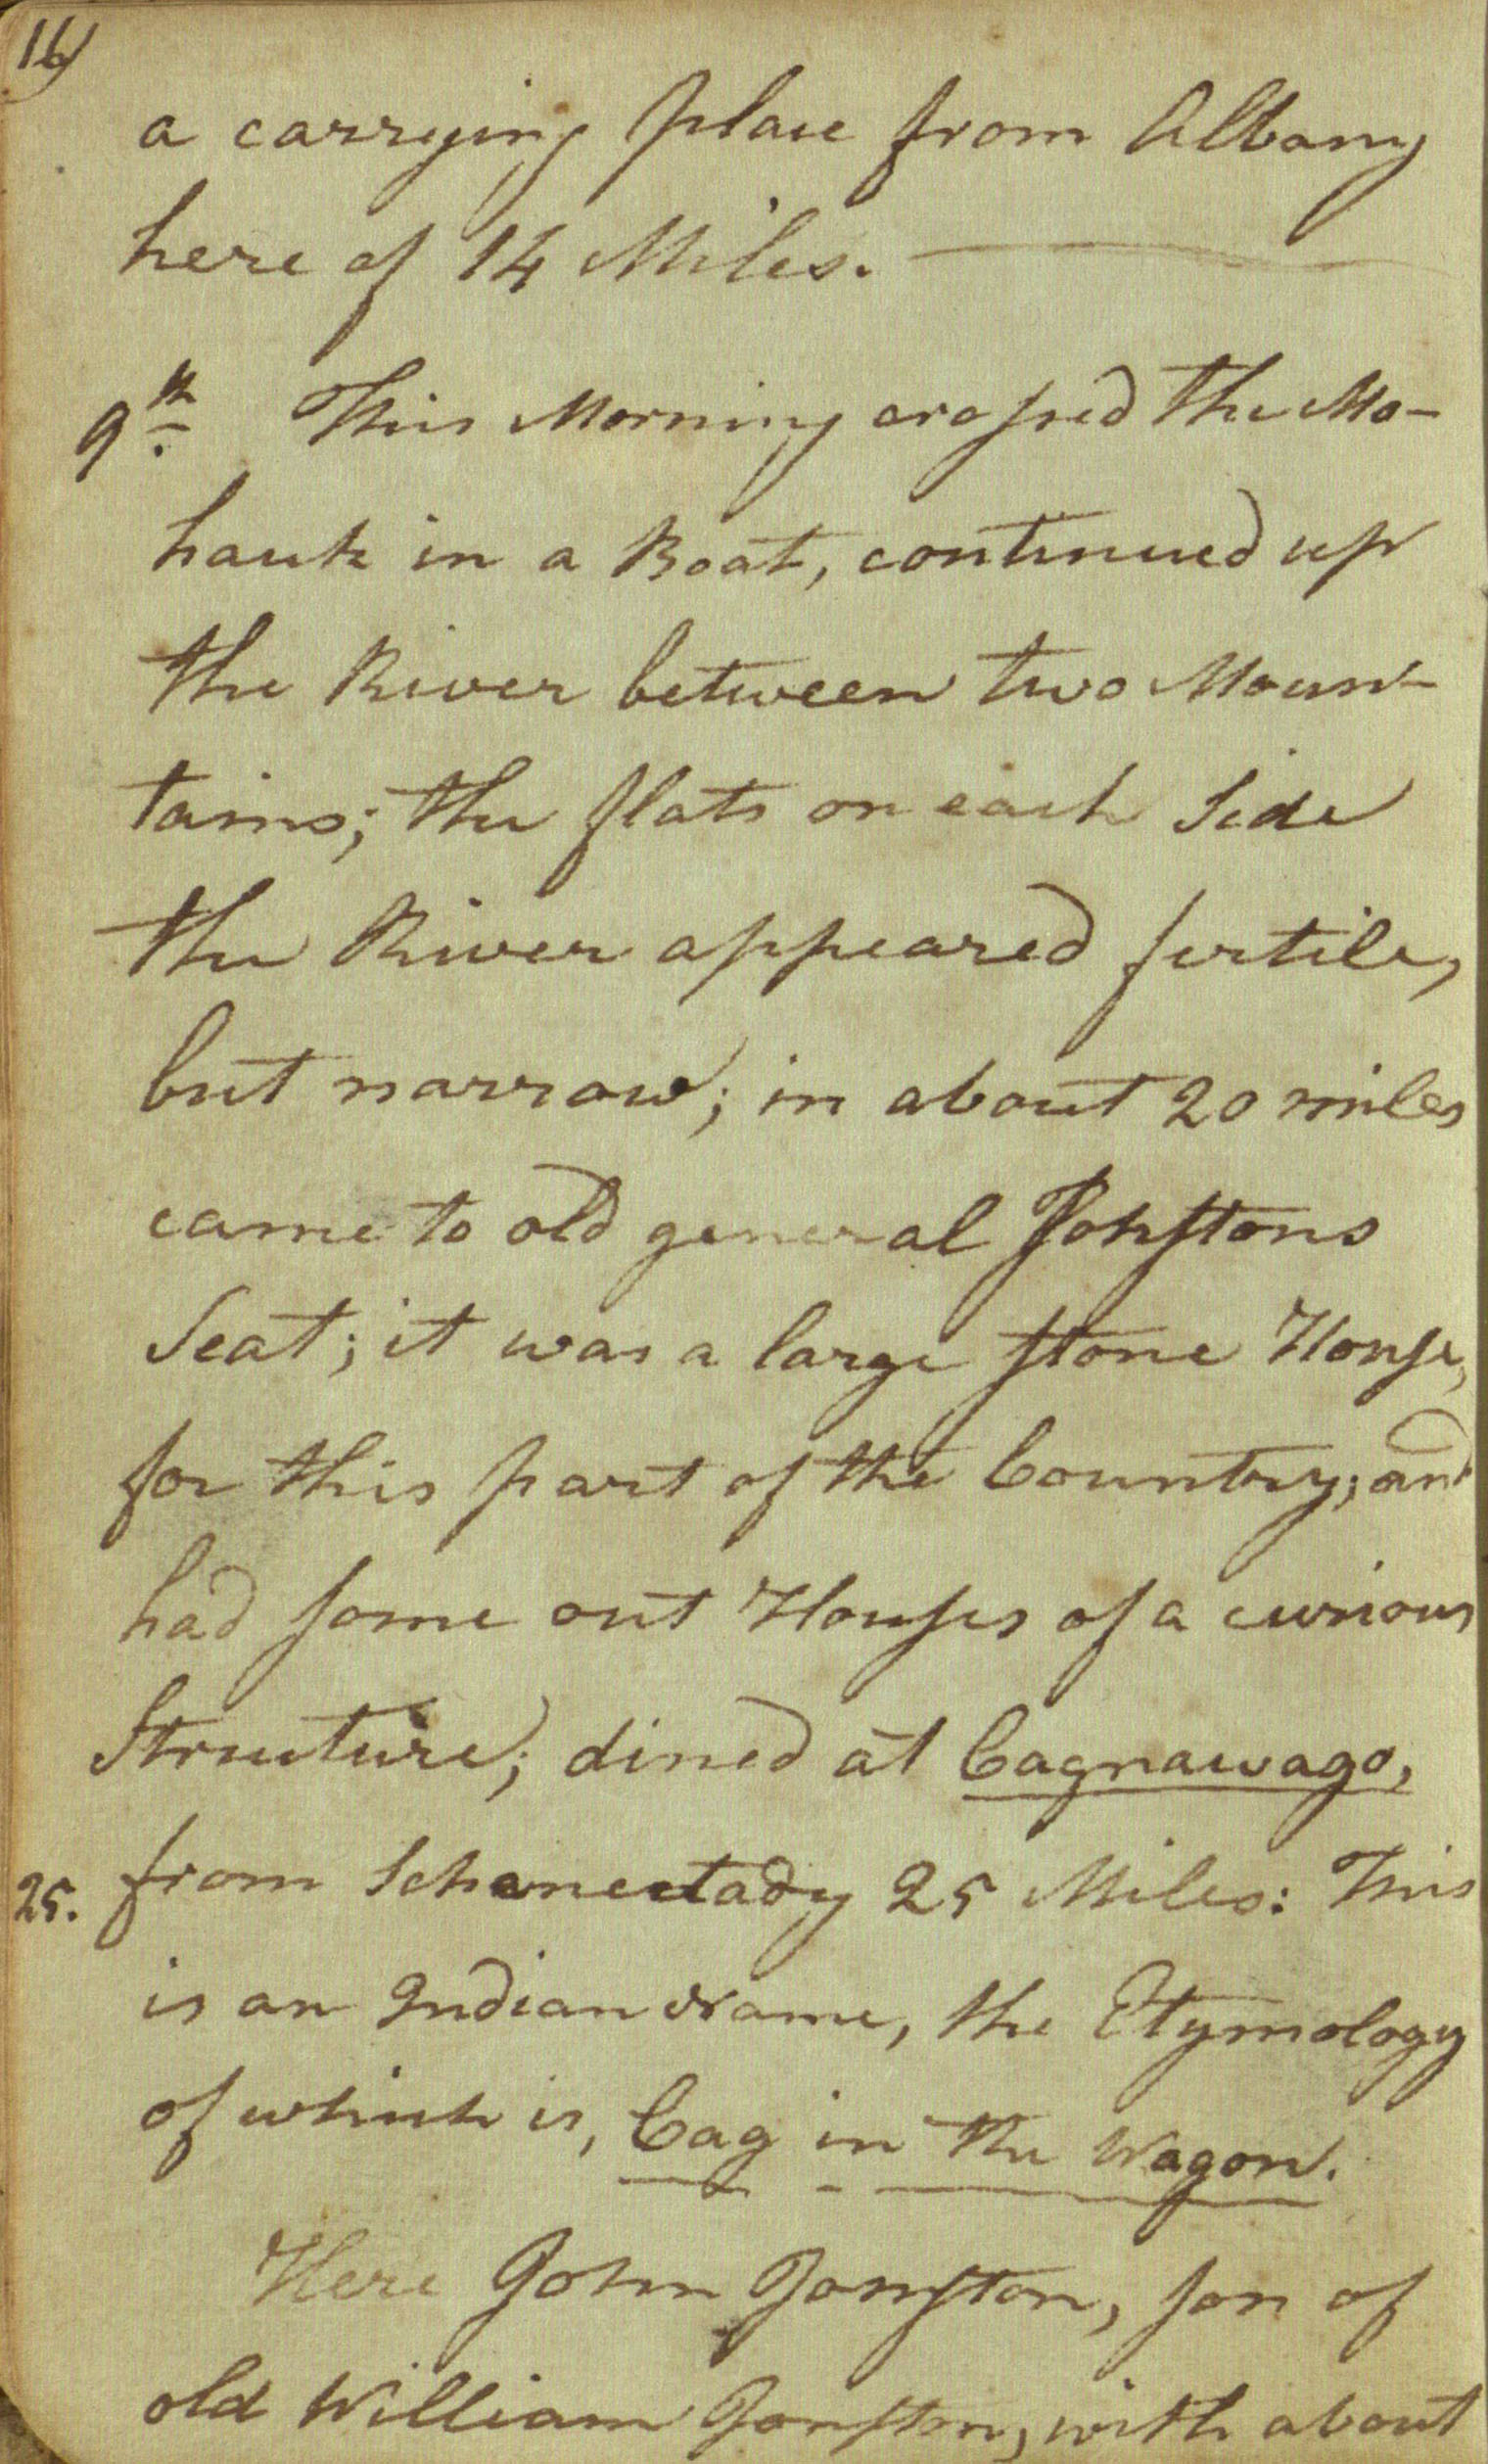 16
a carrying place from Albany
here of 14 Miles.
9th. This Morning crossed the Mo-
hauk in a Boat, continued up
the River between two Moun-
tains; the flats on each Side
the River appeared fertile,
but narrow; in about 20 miles
came to old general Johstons
Seat; it was a large stone House,
for this part of the Country; and
had some out Houses of a curious
Structure; dined at Cagnawago,
25. from Schenectady 25 Miles: This
is an Indian Name, the Etymology
of which is, Cag in the Wagon.
Here John Jonston, son of
old William Jonston, with about